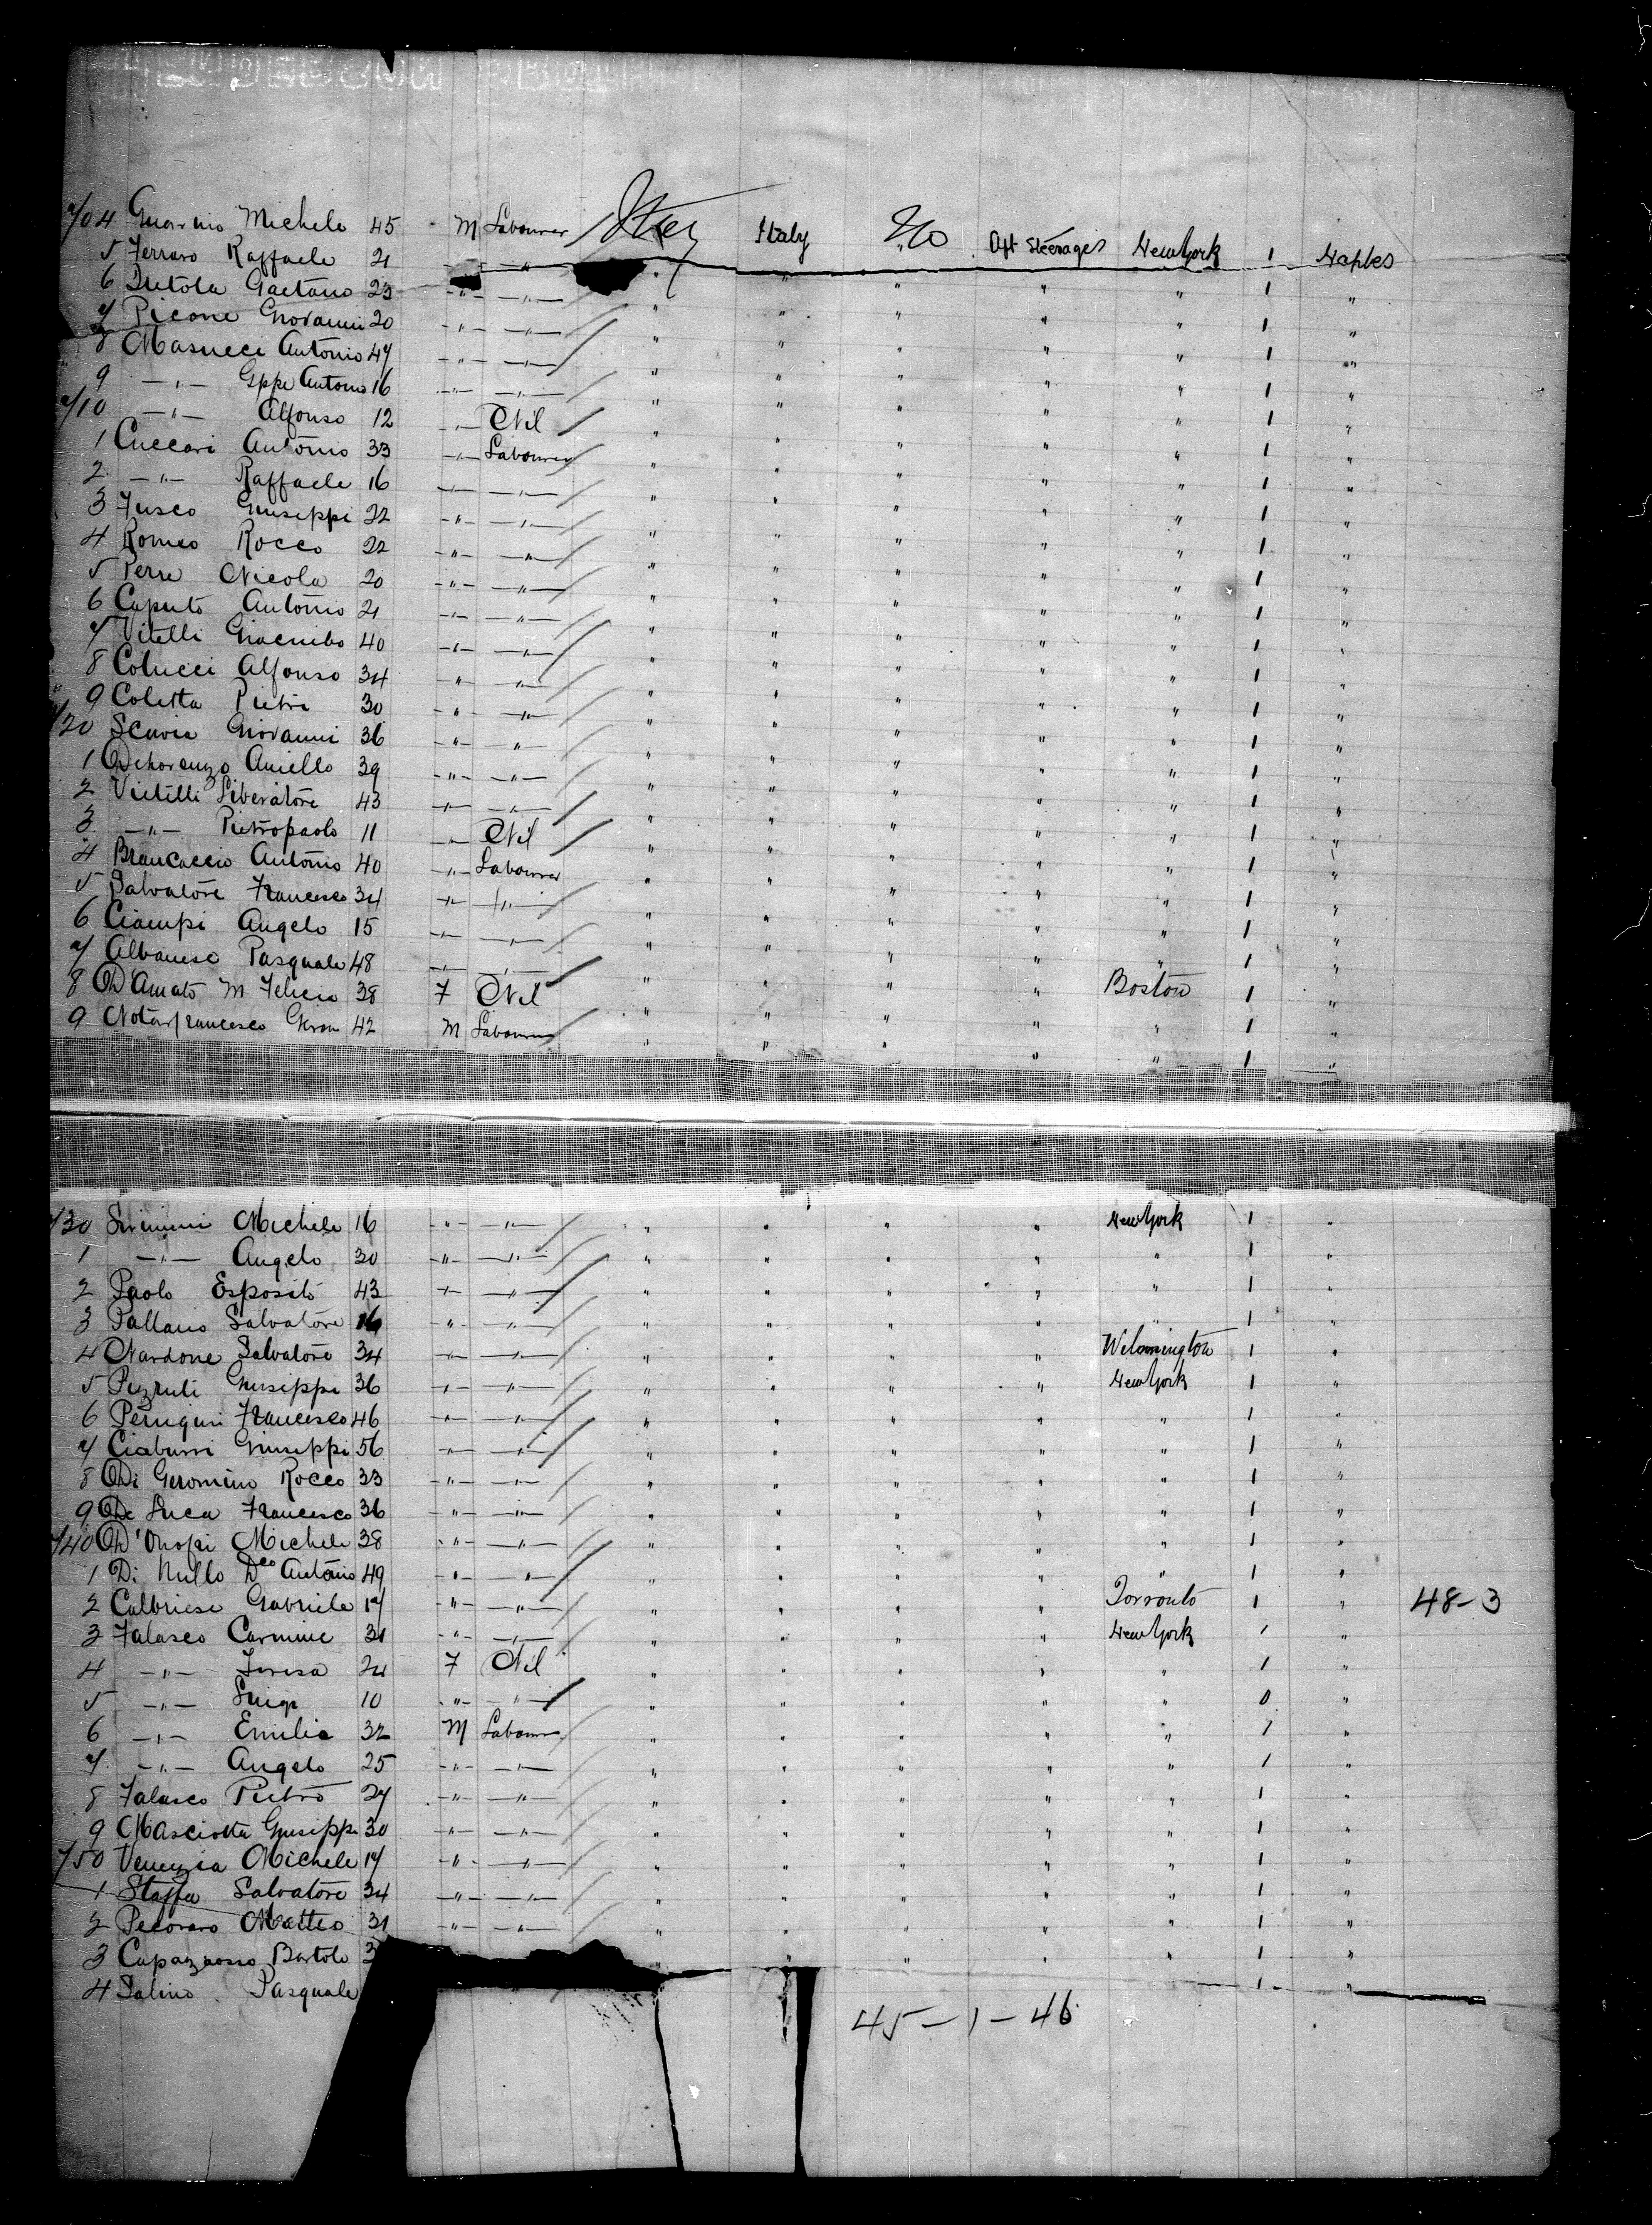 704 Guarino Michele 45 M Labourer Italy Italy No Aft Steerages New York 1 Naples
5 Ferraro Raffaele 21 " " " " " " " 1 "
6 Gaetano 23 " " " " " " " 1 "
7 Picone Giovanni 20 " " " " " " " 1 "
8 Masucci Antonio 47 " " " " " " " 1 "
9 " Gppe Antonio 16 " " " " " " " 1 "
710 " Alfonso 12 " Nil " " " " " 1 "
1 Cuccari Antonio 33 " Labourer " " " " " 1 "
2 " Raffaele 16 " " " " " " " 1 "
3 Fusco Giuseppe 22 " " " " " " " 1 "
4 Romeo Rocco 22 " " " " " " " 1 "
5 Perre Nicola 20 " " " " " " " 1 "
6 Caputo Antonio 21 " " " " " " " 1 "
7 Vitelli 40 " " " " " " " 1 "
8 Colucci Alfonso 34 " " " " " " " 1 "
9 Coletta Pietri 30 " " " " " " " 1 "
720 Giovanni 36 " " " " " " " 1 "
1 DeLorenzo Aniello 39 " " " " " " " 1 "
2 Vietelli Liberatore 43 " " " " " " " 1 "
3 " Pietropaolo 11 " Nil " " " " " 1 "
4 Brancaccio Antonio 40 " Labourer " " " " " 1 "
5 Salvatore Francesco 34 " " " " " " " 1 "
6 Ciampi Angelo 15 " " " " " " " 1 "
7 Albanese Pasquale 48 " " " " " " " 1 "
8 D'Amato M Felicia 38 F Nil " " " " Boston 1 "
9 Notarfrancesco 42 M Labourer " " " " " 1 "
730 Michele 16 " " " " " " New York 1 "
1 " Angelo 30 " " " " " " " 1 "
2 Paolo Esposito 43 " " " " " " " 1 "
3 Pallano Salvatore 16 " " " " " " " 1 "
4 Nardone Salvatore 34 " " " " " " Wilmington 1 "
5 Pezzuti Giuseppe 36 " " " " " " New York 1 "
6 Perugini Francesco 46 " " " " " " " 1 "
7 Ciaburri Giuseppi 56 " " " " " " " 1 "
8 Di Geronimo Rocco 33 " " " " " " " 1 "
9 De Luca Francesco 36 " " " " " " " 1 "
740 D'Onofi Michele 38 " " " " " " " 1 "
1 Di Nullo Dco Antonio 49 " " " " " " " 1 "
2 Calbriese Gabriele 17 " " " " " " Torronto 1 " 48-3
3 Falasco Carmine 31 " " " " " " New York 1 "
4 " Teresa 24 F Nil " " " " " 1 "
5 " Luigi 10 " " " " " " " 0 "
6 " Emilio 32 M Labourer " " " " " 1 "
7 " Angelo 25 " " " " " " " 1 "
8 Falasco Pietro 27 " " " " " " " 1 "
9 Masciotta Giuseppe 30 " " " " " " " 1 "
750 Venezia Michele 17 " " " " " " " 1 "
1 Staffa Salvatore 34 " " " " " " " 1 "
2 Pecoraro Matteo 31 " " " " " " " 1 "
3 Capazzosso Bartolo 3 " " " " " 1 "
4 Salino Pasquale 1 "
45-1-46